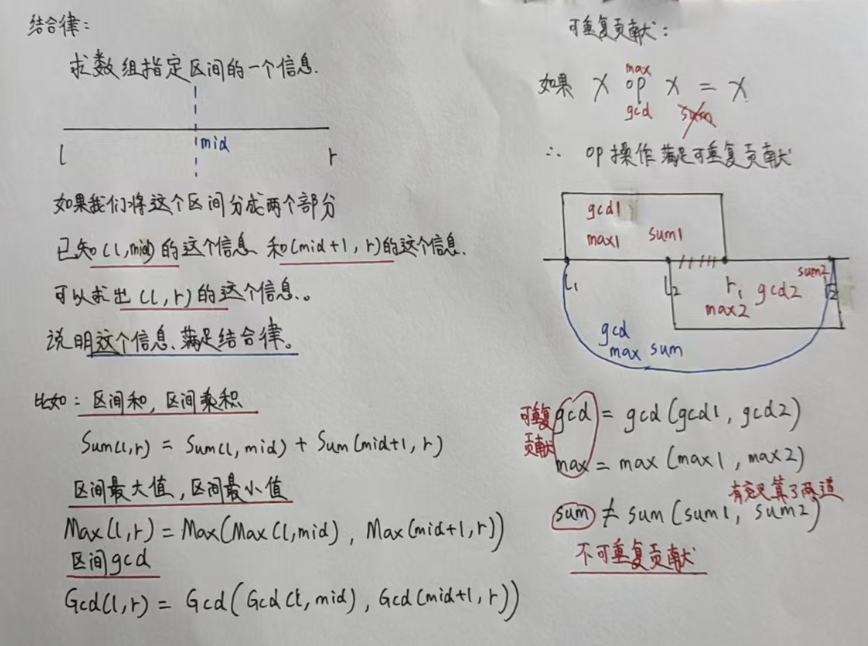 结合律:
求数组指定区间的一个信息.
mid
l
r
如果我们将这个区间分成两个部分
已知(l,mid)的这个信息 和(mid+1,r)的这个信息.
可以求出(l,r)的这个信息。
说明这个信息、满足结合律。
比如: 区间和, 区间乘积
Sum(l,r) = Sum(l,mid) + Sum(mid+1,r)
区间最大值, 区间最小值
Max(l,r) = Max(Max(l,mid), Max(mid+1,r))
区间gcd
Gcd(l,r) = Gcd(Gcd(l,mid), Gcd(mid+1,r))
可重复贡献:
max
如果 X op X = X
gcd sum
∴ op操作满足可重复贡献
gcd1
max1 sum1
sum2
l1 l2 r1 gcd2 r2
max2
gcd
max sum
可重复
贡献
gcd = gcd(gcd1, gcd2)
max = max(max1, max2)
算了两遍
sum ≠ sum(sum1, sum2)
不可重复贡献